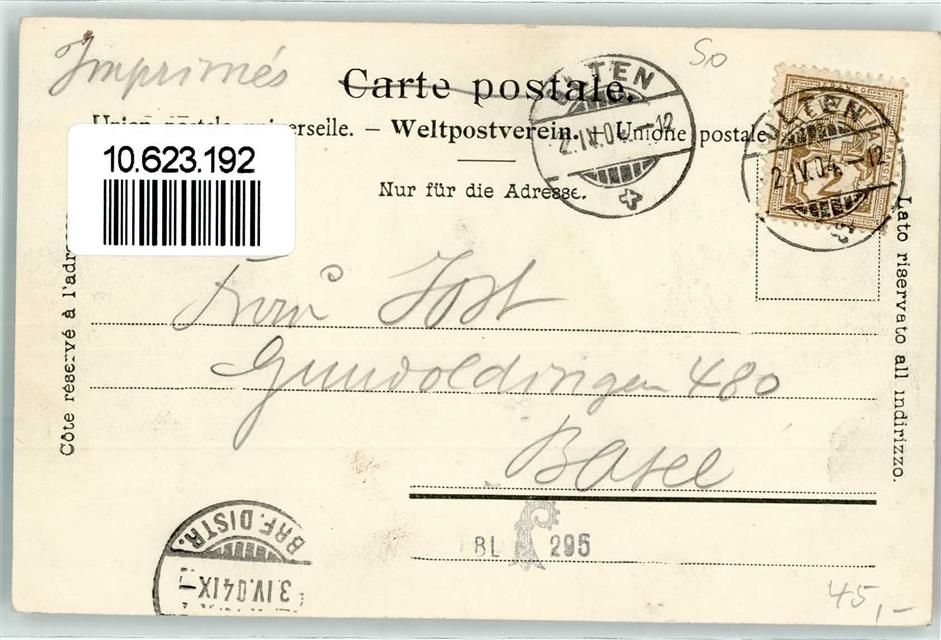 Imprimés
50
Carte postale.
Union postale universelle. – Weltpostverein. – Unione postale
Nur für die Adresse.
10.623.192
OLTEN
2.IV.04.–12
OLTEN
2.IV.04.–12
2
Côte réservé à l'adresse
Lato riservato all indirizzo.
Frau Jost
Gundoldingen 480
Basel
BL 295
BRF. DISTR.
3.IV.04IX–
45,–